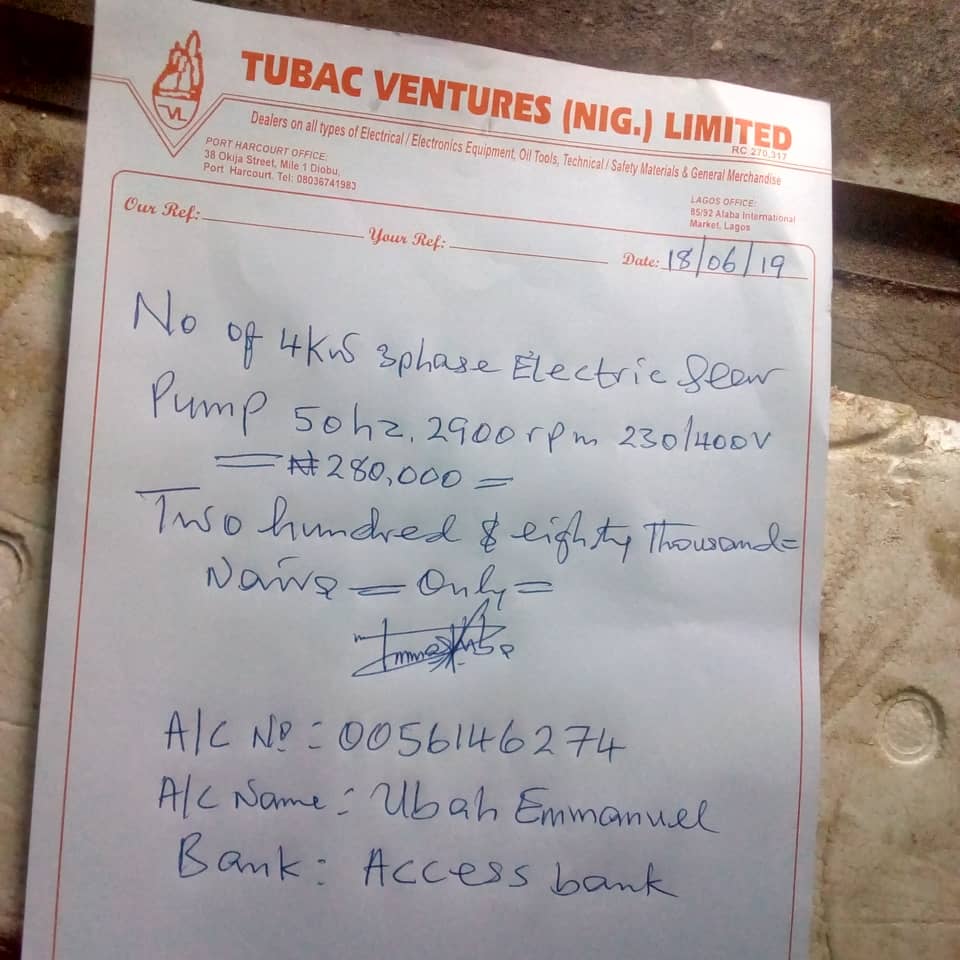 TUBAC VENTURES (NIG.) LIMITED
RC 270,317
Dealers on all types of Electrical / Electronics Equipment, Oil Tools, Technical / Safety Materials & General Merchandise
PORT HARCOURT OFFICE:
38 Okija Street, Mile 1 Diobu,
Port Harcourt. Tel: 08036741983
LAGOS OFFICE:
85/92 Alaba International
Market, Lagos
VL
Our Ref:
Your Ref:
Date: 18/06/19
No of 4Kw 3phase Electric
Pump 50hz. 2900rpm 230/400V
= ₦280,000 =
Two hundred & eighty Thousand =
Naira = Only =
A/C No = 0056146274
A/C Name: Ubah Emmanuel
Bank: Access bank